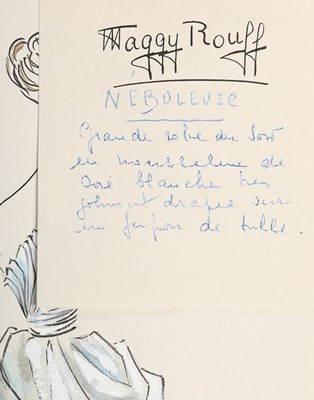 Maggy Rouff
NÉBULEUSE
Grande robe du soir
en mousseline de
soie blanche très
joliment drapée sur
un jupon de tulle.